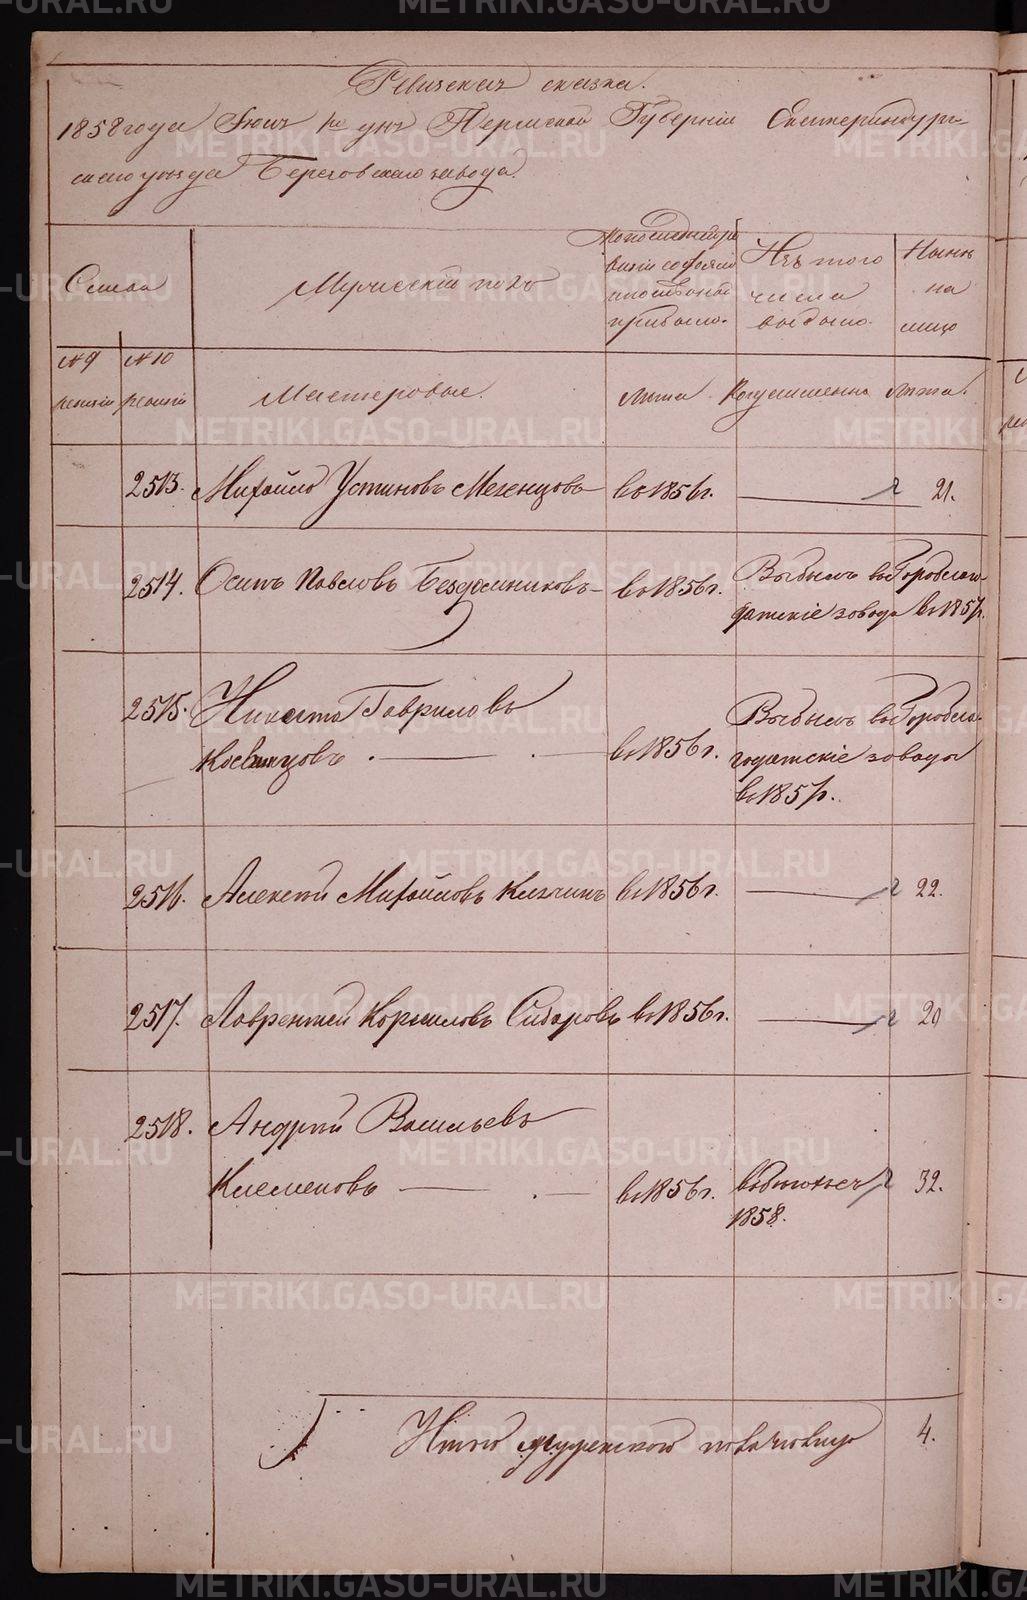 Ревизская сказка.
1858 года Июня дня Пермской Губернии Екатеринбург-
скаго уезда Березовскаго завода.
Семьи
Мужеский пол
По последней ре-
визии состояло
и после оной
прибыло.
Из того
числа
выбыло.
Ныне
на
лицо
№ 9 ревизии
№ 10 ревизии
Мастеровые.
Лета
Когда именно
Лета.
2513. Михайло Устиновъ Мезенцовъ в 1856 г. 21.
2514. Осипъ Павловъ Бездомниковъ в 1856 г. Выбылъ въ Гороблаго-
датские завода в 1857 г.
2515. Никита Гавриловъ
Косвинцовъ в 1856 г. Выбылъ въ Горобла-
годатские заводы
в 1857 г.
2516. Алексей Михайловъ в 1856 г. 22.
2517. Лаврентий Корниловъ в 1856 г. 20
2518. Андрей Васильевъ
Клеменовъ в 1856 г. 32.
1858.
Итого мужескаго пола на лицо 4.
METRIKI.GASO-URAL.RU